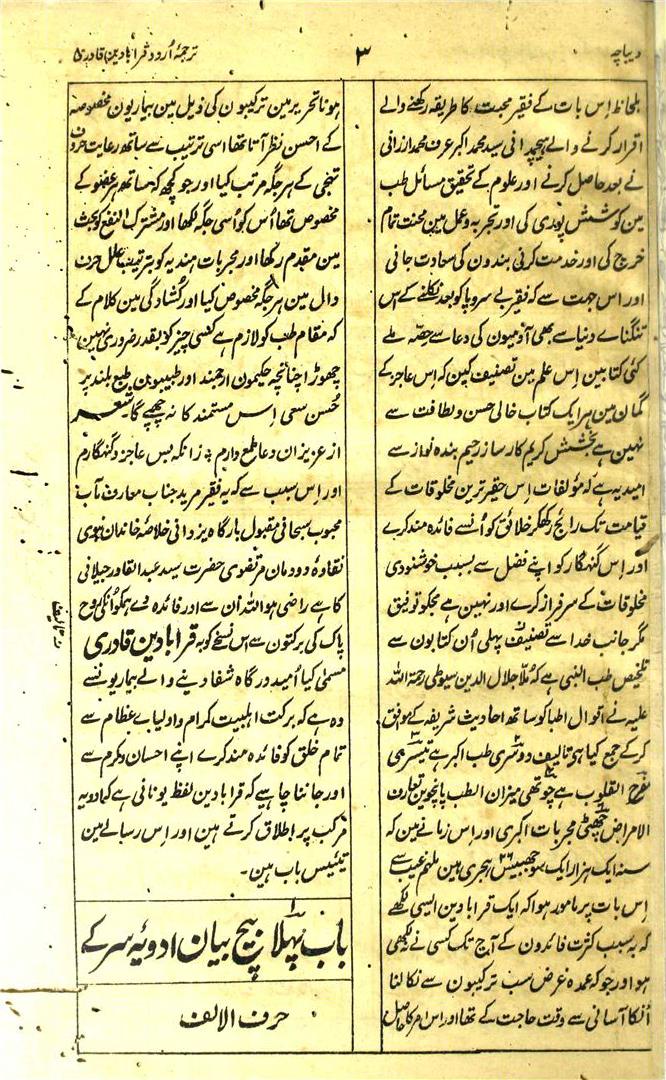 دیباچہ
۳
ترجمۂ اُردو قرابادین قادری
بلحاظ اِس بات کے فقیر محبت کا طریقہ رکھنے والے
اقرار کرنے والے ہیچمدانی سید محمد اکبر عرف محمد ارزانی
نے بعد حاصل کرنے اور علوم کے تحقیق مسائل طب
مین کوشش پوری کی اور تجربہ و عمل مین محنت تمام
خرچ کی اور خدمت کرنی بندون کی سعادت جانی
اور اس جہت سے کہ فقیر بے سروپا کو بعد نکلنے کے اس
تنگناے دنیا سے بھی آدمیون کی دعا سے حصّہ ملے
کئی کتابین اِس علم مین تصنیف کین کہ اِس عاجز کے
گمان مین ہر ایک کتاب خالی حسن و لطافت سے
نہین ہے بخشش کریم کارساز رحیم بندہ نواز سے
امید یہ ہے کہ مؤلفات اِس حقیر ترین مخلوقات کے
قیامت تک رائج رکھکر خلائق کو اُنسے فائدہ مند کرے
اور اِس گنہگار کو اپنے فضل سے بسبب خوشنودی
مخلوقات کے سرفراز کرے اور نہین ہے مجکو توفیق
مگر جانب خدا سے تصنیف پہلی اُن کتابون سے
تلخیص طب النبی ہے کہ مُلّا جلال الدین سیوطی رحمۃ اللہ
علیہ نے اقوال اطبا کو ساتھ احادیث شریفہ کے موافق
کر کے جمع کیا ہی تالیف دوسری طب اکبر ہے تیسری
مفرح القلوب ہے چوتھی میزان الطب پانچوین تعارف
الامراض چھٹی مجربات اکبری اور اِس زمانے مین کہ
سنہ ایک ہزار ایک سو چھبیس ۲۶ ہجری ہین ملہم غیب سے
اِس بات پر مامور ہوا کہ ایک قرابادین ایسی لکھے
کہ بہ سبب کثرت فائدون کے آج تک کسی نے نہ لکھی
ہو اور جو کہ عمدہ غرض سب ترکیبون سے نکالنا
اُنکا آسانی سے وقت حاجت کے تھا اور اس امر کا حاصل
ہونا تحریر مین ترکیبون کی ذیل مین بیماریون مخصوصہ
کے احسن نظر آتا تھا اسی ترتیب سے ساتھ رعایت حروف
تہجی کے ہر جگہ مرتب کیا اور جو کچھ کہ ساتھ ہر عضو کے
مخصوص تھا اُس کو اُسی جگہ لکھا اور مشترک النفع کو بحث
مین مقدم رکھا اور مجربات ہندیہ کو بترتیب علل حرف
دال مین ہر جگہ مخصوص کیا اور کُشادگی مین کلام کے
کہ مقام طب کو لازم ہے کسی چیز کو بقدر ضروری نہین
چھوڑا چنانچہ حکیمون ارجمند اور طبیبون طبع بلند پر
حُسن سعی اِس مستمند کا نہ چھپے گا۔ شعر
از عزیزان دعا طمع دارم ؛ زانکہ بس عاجز و گنہگارم
اور اِس سبب سے کہ یہ فقیر مرید جناب معارف مآب
محبوب سبحانی مقبول بارگاہ یزدانی خلاصۂ خاندان نبوی
نقاوۂ دودمان مرتضوی حضرت سید عبد القادر جیلانی
کا ہے راضی ہو اللہ اُن سے اور فائدہ دے ہمکو اُنکی روح
پاک کی برکتون سے اس نسخے کو بہ قرابادین قادری
مسمّیٰ کیا اُمید درگاہ شفا دینے والے بیماریونسے
وہ ہے کہ برکت اہلبیت کرام و اولیاے عظام سے
تمام خلق کو فائدہ مند کرے اپنے احسان و کرم سے
اور جاننا چاہیے کہ قرابادین لفظ یونانی ہے کہ ادویہ
مرکب پر اطلاق کرتے ہین اور اِس رسالے مین
تیئیس باب ہین۔
باب پہلا بیچ بیان ادویۂ سر کے
حرف الالف